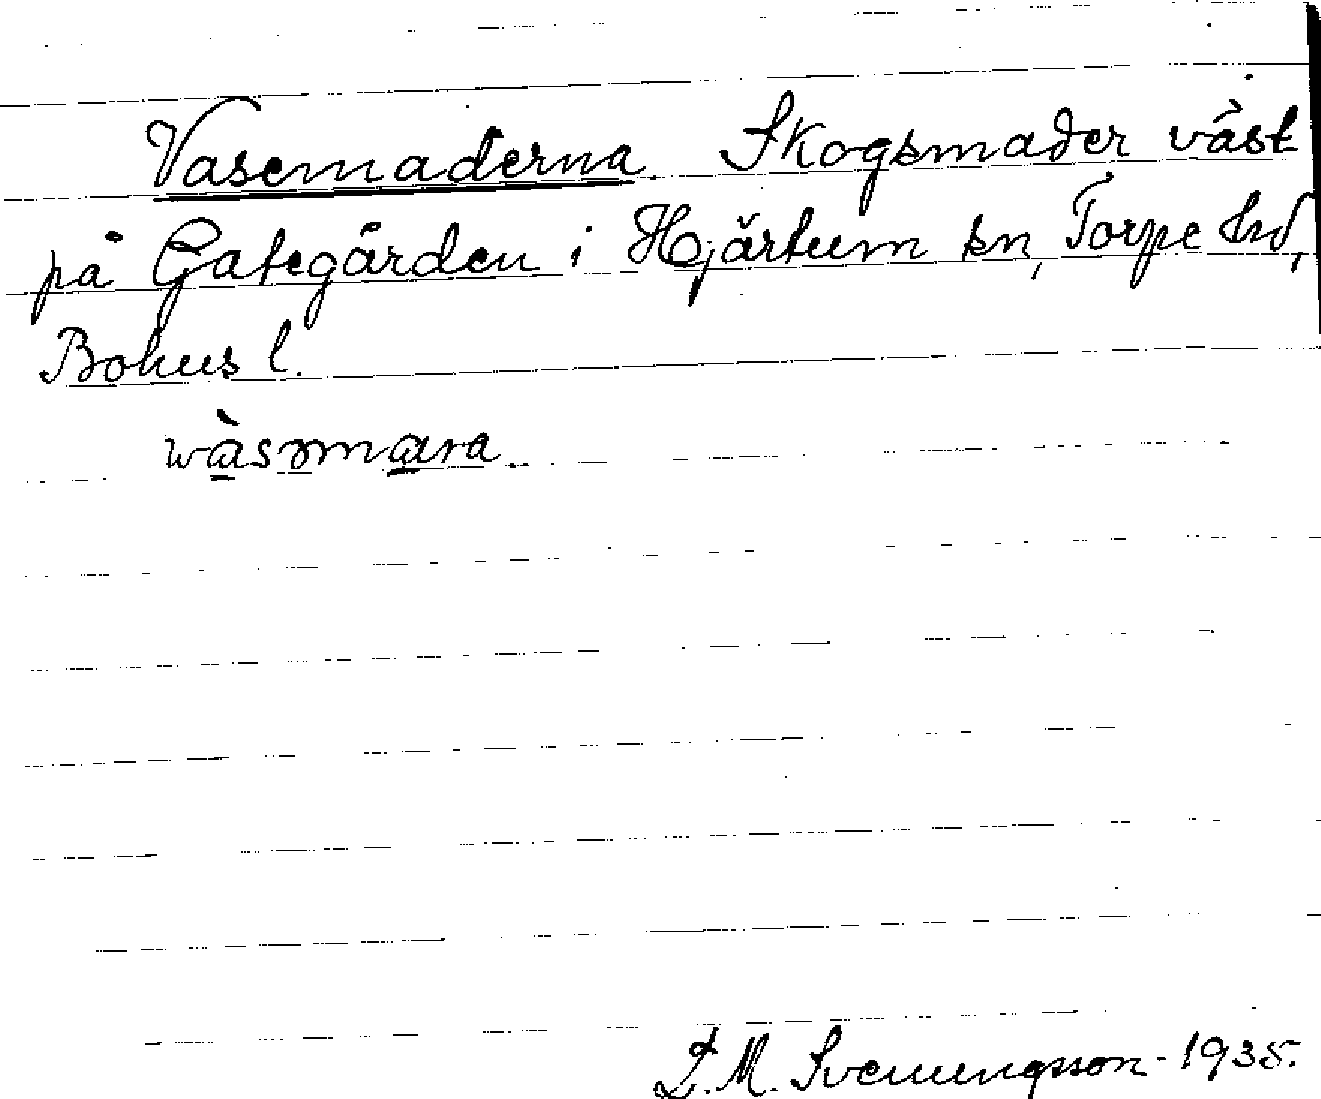 Vasemaderna. Skogsmader väst
på Gategården i Hjärtum sn, Torpe hd,
Bohus l.
wàsmmara
L. M. Svenungsson - 1935.